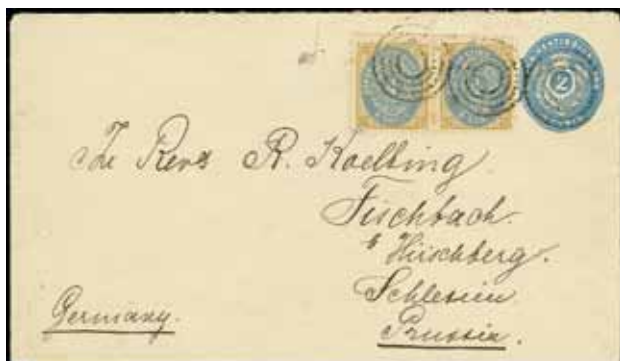 2
The Revd R. Koelbing.
Fischbach.
b Hirschberg.
Schlesien
Prussia.
Germany.